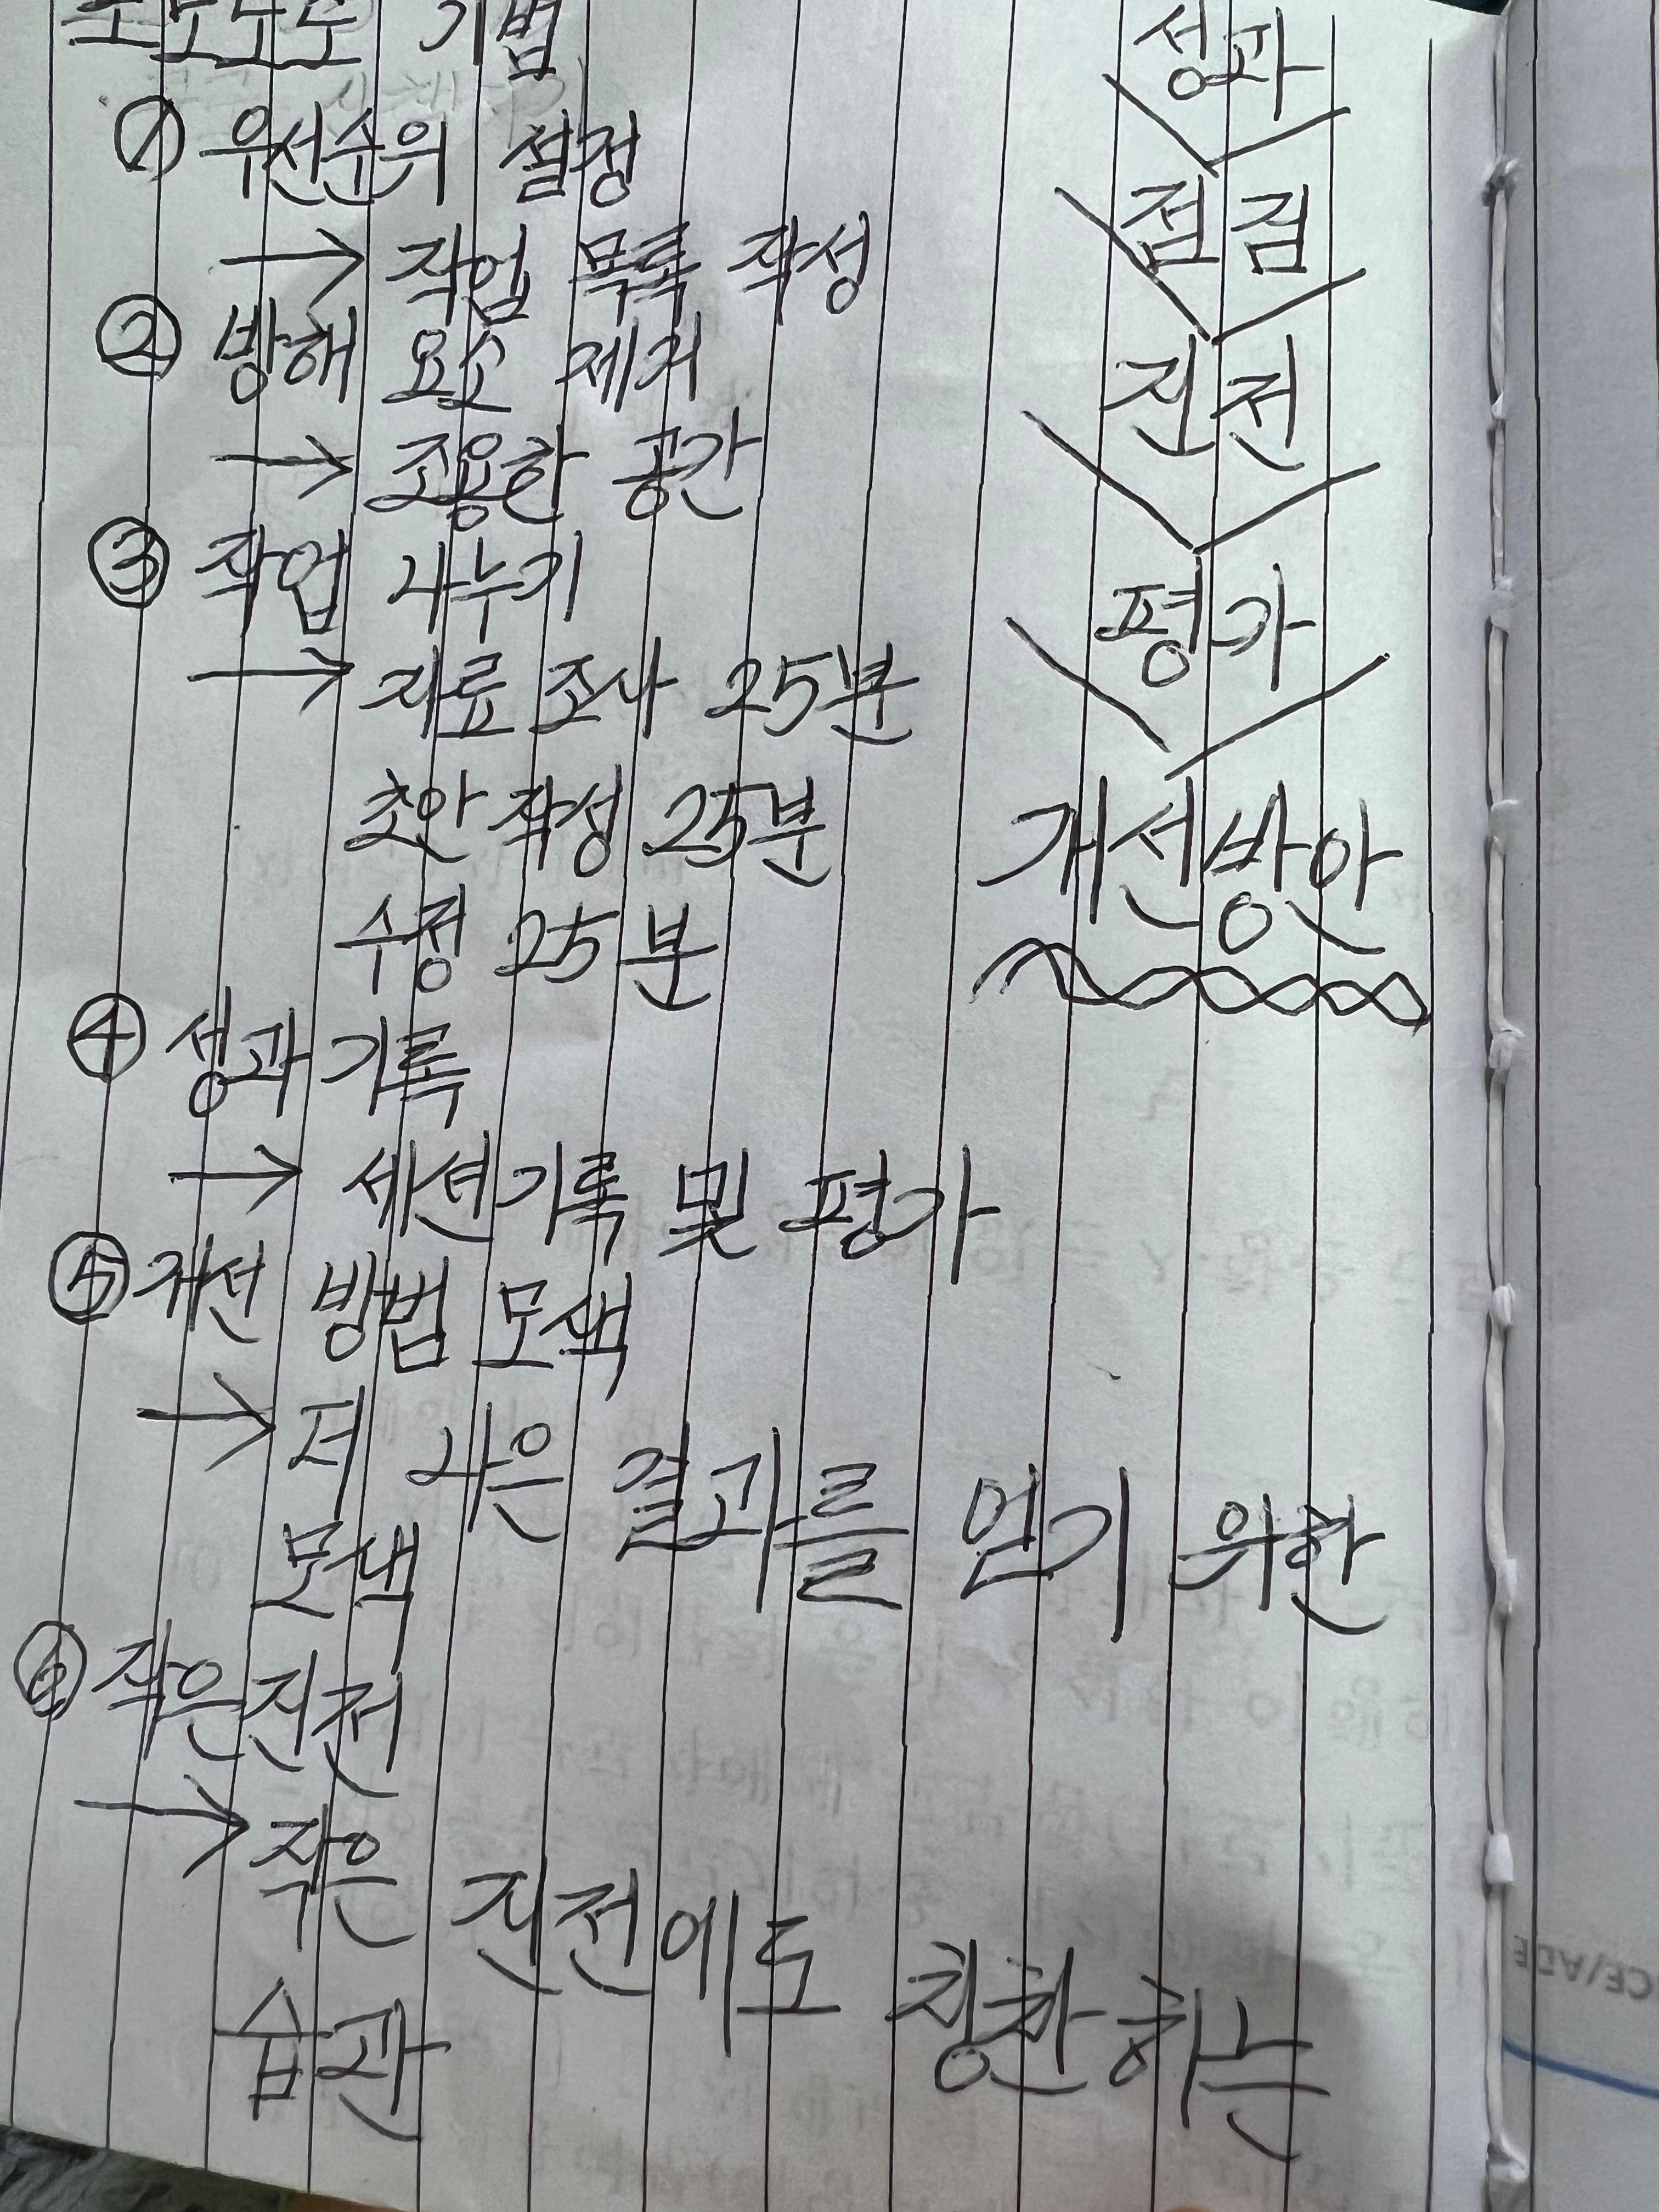 기법
① 우선순위 설정
→ 작업 목록 작성
② 방해 요소 제거
→ 조용한 공간
③ 작업 나누기
→ 자료 조사 25분
초안 작성 25분
수정 25분
④ 성과 기록
→ 세션 기록 및 평가
⑤ 개선 방법 모색
→ 더 나은 결과를 얻기 위한
모색
⑥ 작은 진전
→ 작은 진전에도 칭찬하는
습관
성과
점검
진전
평가
개선방안